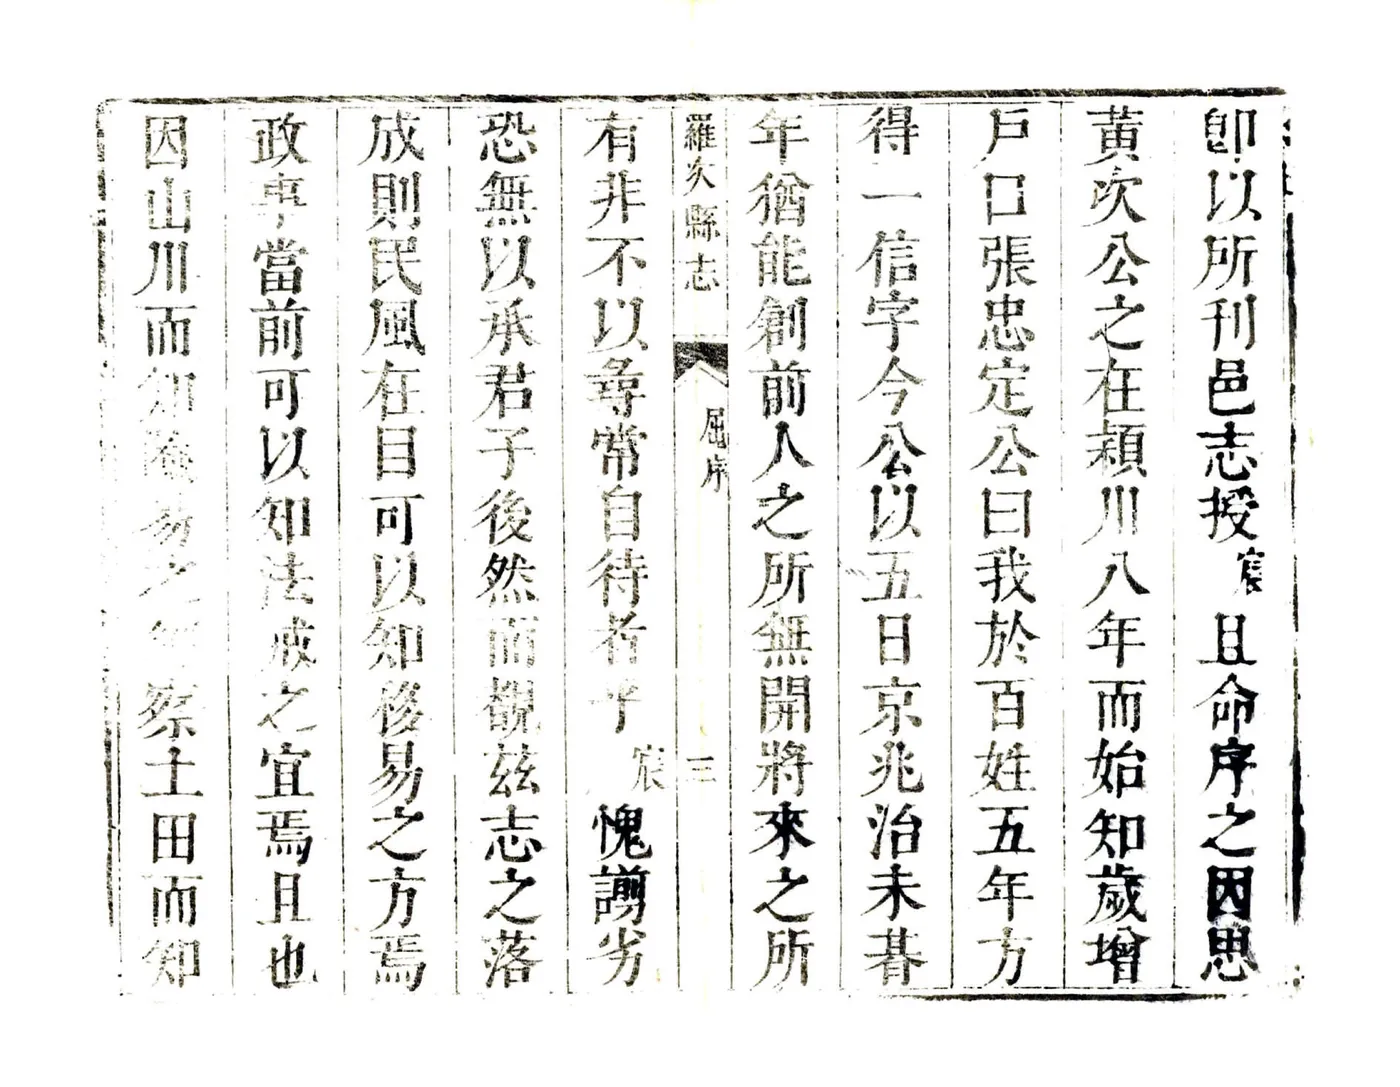 卽以所刊邑志授宸且命序之因思
黃次公之在潁川八年而始知歲增
戶口張忠定公曰我於百姓五年方
得一信字今公以五日京兆治未朞
年猶能創前人之所無開將來之所
羅次縣志 屈序 三
有非不以尋常自待者乎宸愧謭劣
恐無以承君子後然而覩茲志之落
成則民風在目可以知移易之方焉
政事當前可以知法戒之宜焉且也
因山川而知險易之 察土田而知